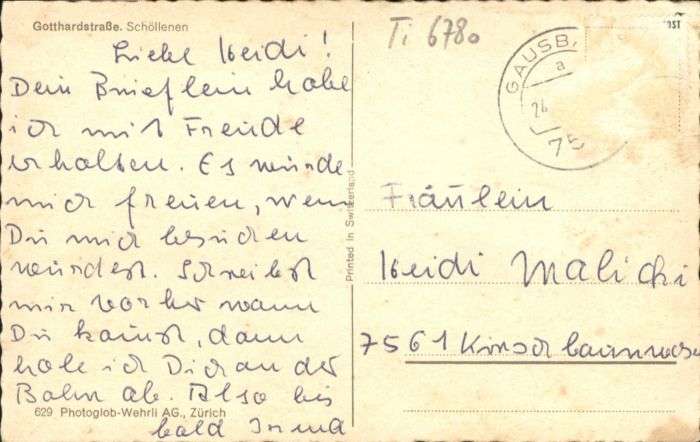 Gotthardstraße. Schöllenen
Liebe Heidi!
Dein Brieflein habe
ich mit Freude
erhalten. Es würde
mich freuen, wenn
Du mich besuchen
würdest. Schreibst
mir vorher wann
Du kannst, dann
hole ich Dich an der
Bahn ab. Also bis
bald Irma
629 Photoglob-Wehrli AG., Zürich
Printed in Switzerland
Ti 6780
POST
GAUSB
a
75
Fräulein
Heidi Malicki
7561